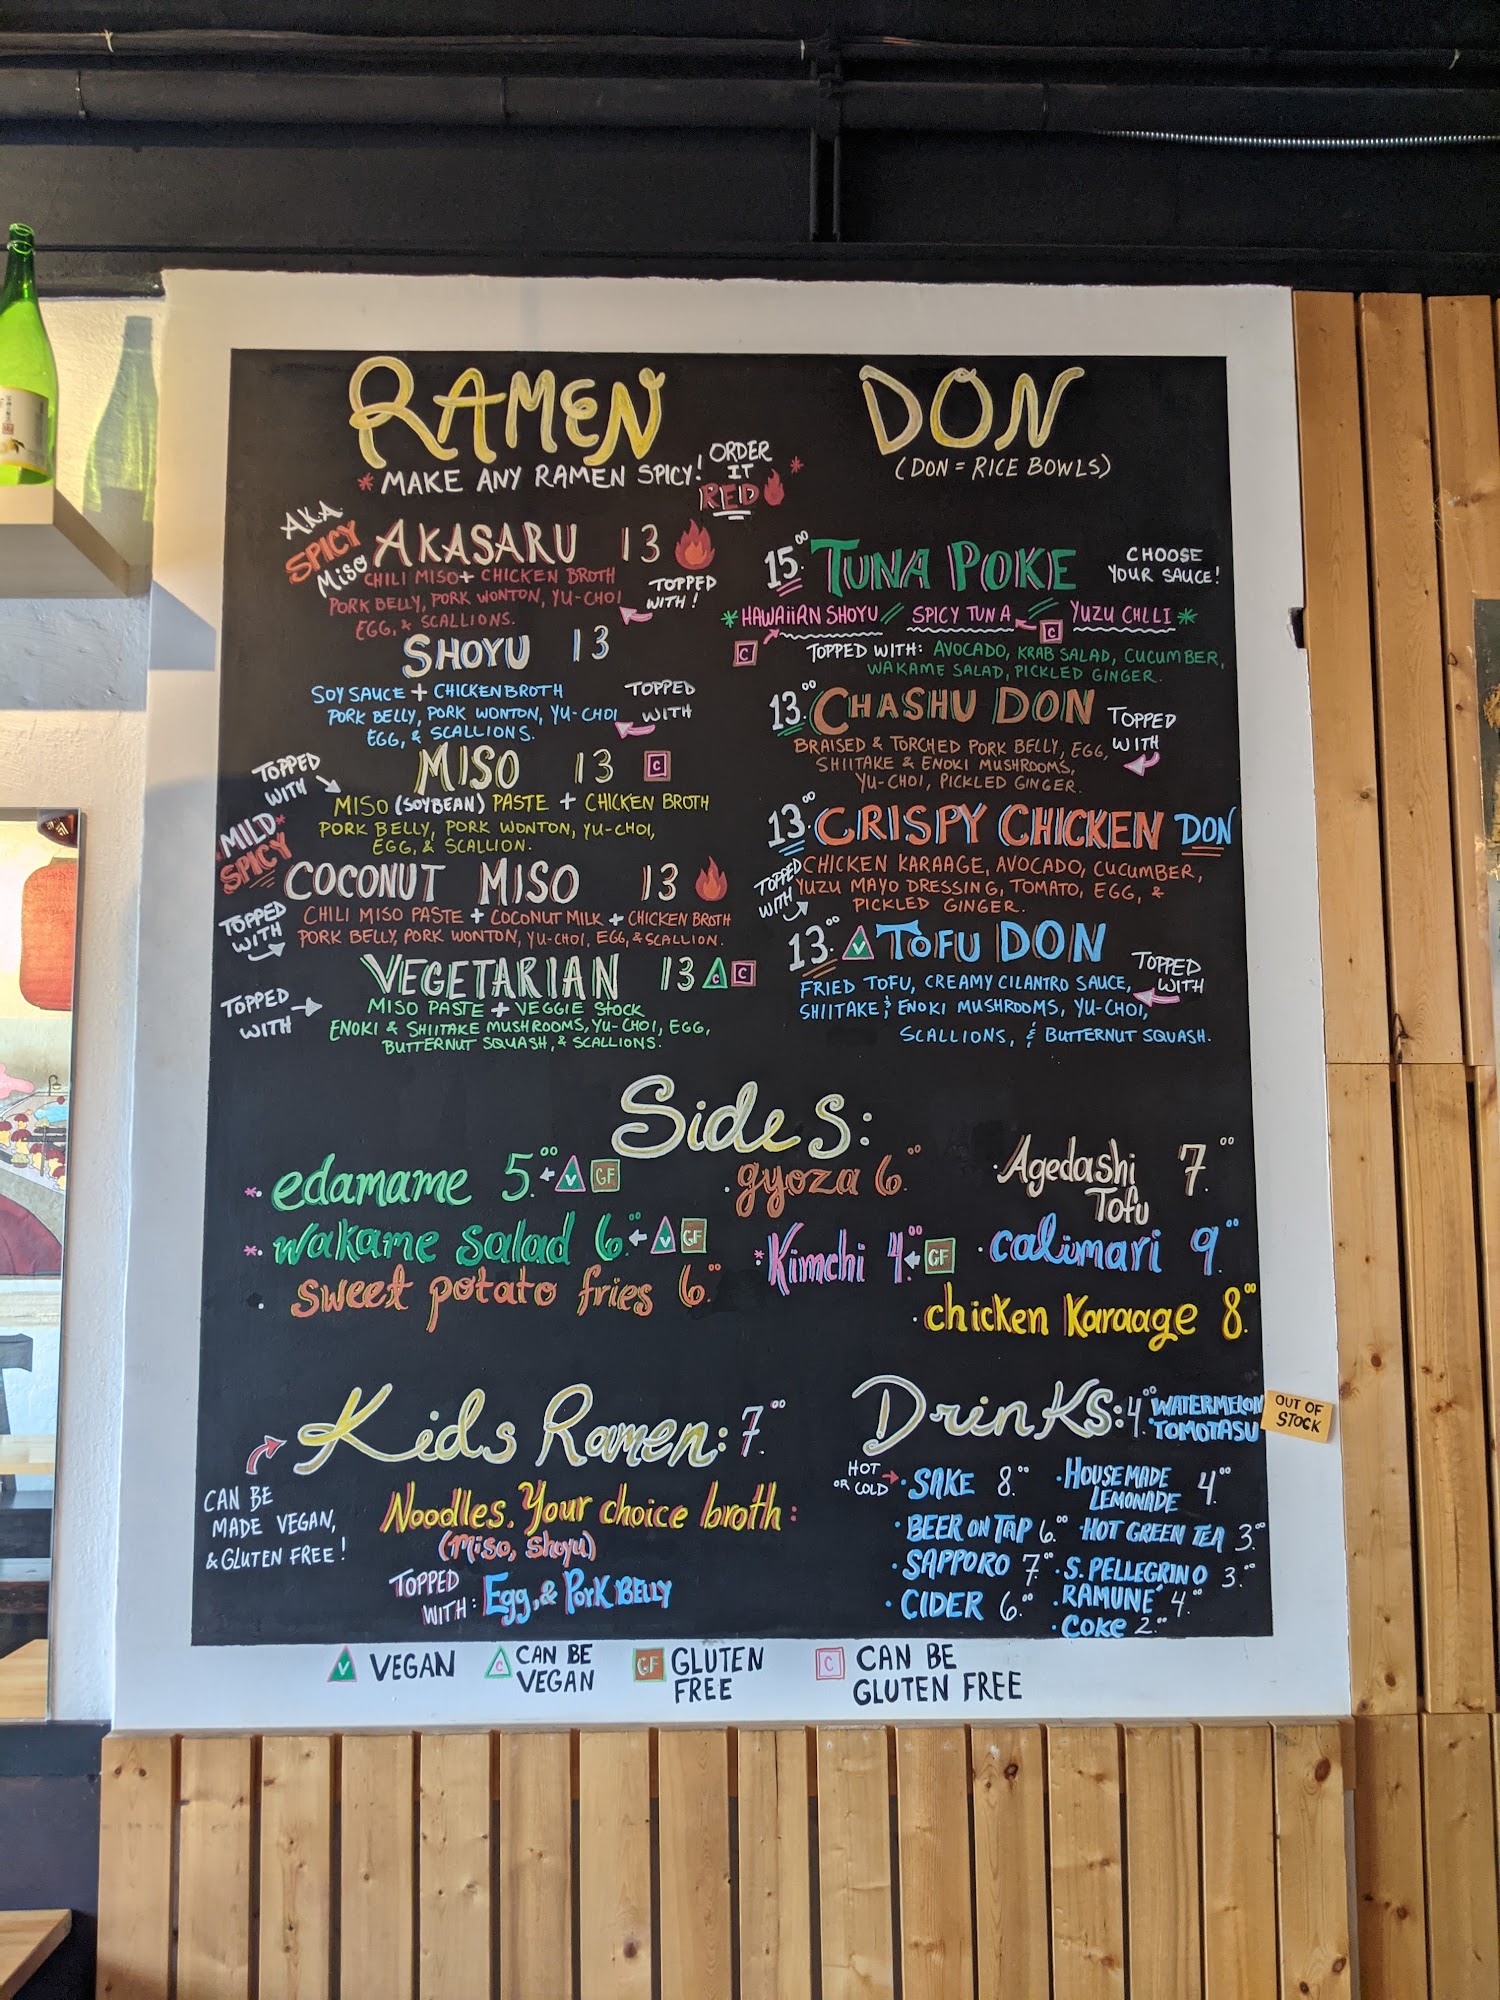 RAMEN
*MAKE ANY RAMEN SPICY! ORDER IT RED *
AKA SPICY MISO
AKASARU 13
CHILI MISO + CHICKEN BROTH
PORK BELLY, PORK WONTON, YU-CHOI
EGG, & SCALLIONS.
TOPPED WITH!
SHOYU 13
SOY SAUCE + CHICKEN BROTH
PORK BELLY, PORK WONTON, YU-CHOI
EGG, & SCALLIONS.
TOPPED WITH
MISO 13 C
TOPPED WITH
MISO (SOYBEAN) PASTE + CHICKEN BROTH
PORK BELLY, PORK WONTON, YU-CHOI,
EGG, & SCALLION.
*MILD* SPICY
COCONUT MISO 13
TOPPED WITH
CHILI MISO PASTE + COCONUT MILK + CHICKEN BROTH
PORK BELLY, PORK WONTON, YU-CHOI, EGG, & SCALLION.
VEGETARIAN 13 C C
TOPPED WITH
MISO PASTE + VEGGIE STOCK
ENOKI & SHIITAKE MUSHROOMS, YU-CHOI, EGG,
BUTTERNUT SQUASH, & SCALLIONS.
DON
(DON = RICE BOWLS)
15.00 TUNA POKE
CHOOSE
YOUR SAUCE!
*HAWAIIAN SHOYU // SPICY TUNA // YUZU CHLLI *
C C
TOPPED WITH: AVOCADO, KRAB SALAD, CUCUMBER,
WAKAME SALAD, PICKLED GINGER.
13.00 CHASHU DON
TOPPED WITH
BRAISED & TORCHED PORK BELLY, EGG,
SHIITAKE & ENOKI MUSHROOMS,
YU-CHOI, PICKLED GINGER.
13.00 CRISPY CHICKEN DON
TOPPED WITH
CHICKEN KARAAGE, AVOCADO, CUCUMBER,
YUZU MAYO DRESSING, TOMATO, EGG, &
PICKLED GINGER.
13.00 V TOFU DON
TOPPED WITH
FRIED TOFU, CREAMY CILANTRO SAUCE,
SHIITAKE & ENOKI MUSHROOMS, YU-CHOI,
SCALLIONS, & BUTTERNUT SQUASH.
Sides:
*. edamame 5.00 V GF
*. wakame salad 6.00 V GF
. sweet potato fries 6.00
. gyoza 6.00
*. Kimchi 4.00 GF
. Agedashi Tofu 7.00
. calimari 9.00
. chicken Karaage 8.00
Kids Ramen: 7.00
CAN BE
MADE VEGAN,
& GLUTEN FREE!
Noodles. Your choice broth:
(Miso, Shoyu)
TOPPED WITH: Egg, & Pork BELLY
Drinks: 4.00 WATERMELON
TOMOTASU
OUT OF
STOCK
HOT OR COLD
. SAKE 8.00
. BEER ON TAP 6.00
. SAPPORO 7.00
. CIDER 6.00
. HOUSEMADE LEMONADE 4.00
. HOT GREEN TEA 3.00
. S. PELLEGRINO 3.00
. RAMUNÉ 4.00
. COKE 2.00
V VEGAN
C CAN BE VEGAN
GF GLUTEN FREE
C CAN BE GLUTEN FREE